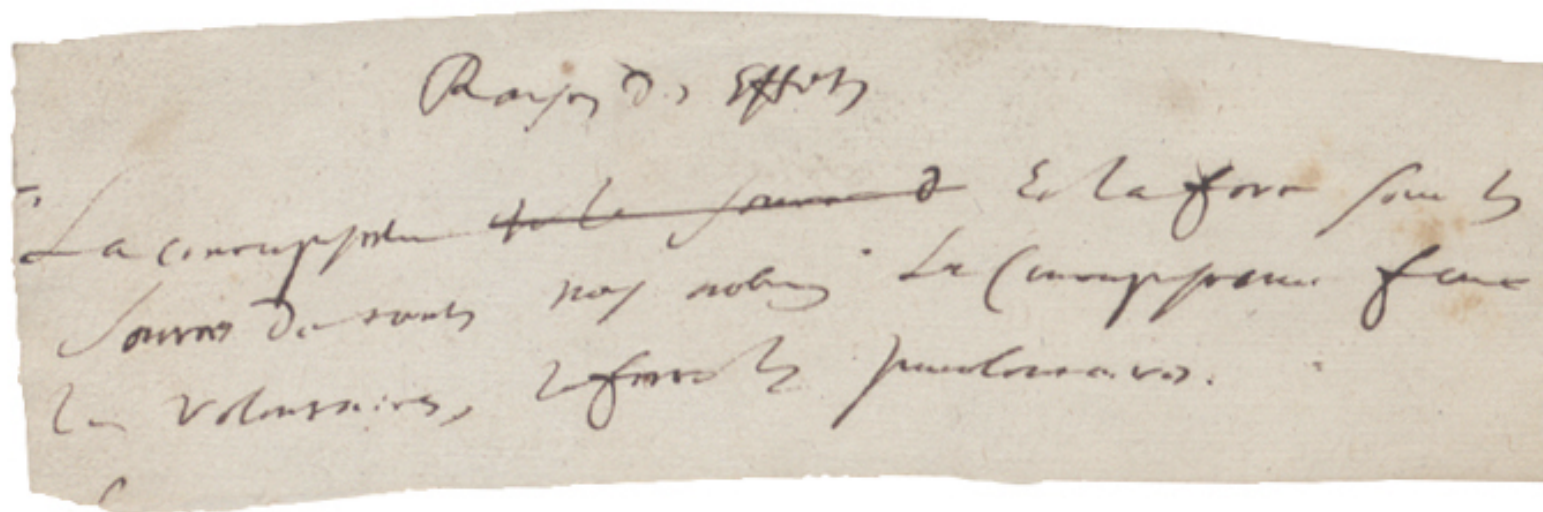 Raison des Effets
La concupiscence est la source d Et la force sont les
sources de toutes nos actions La Concupiscence fait
les volontaires, la force les involontaires.